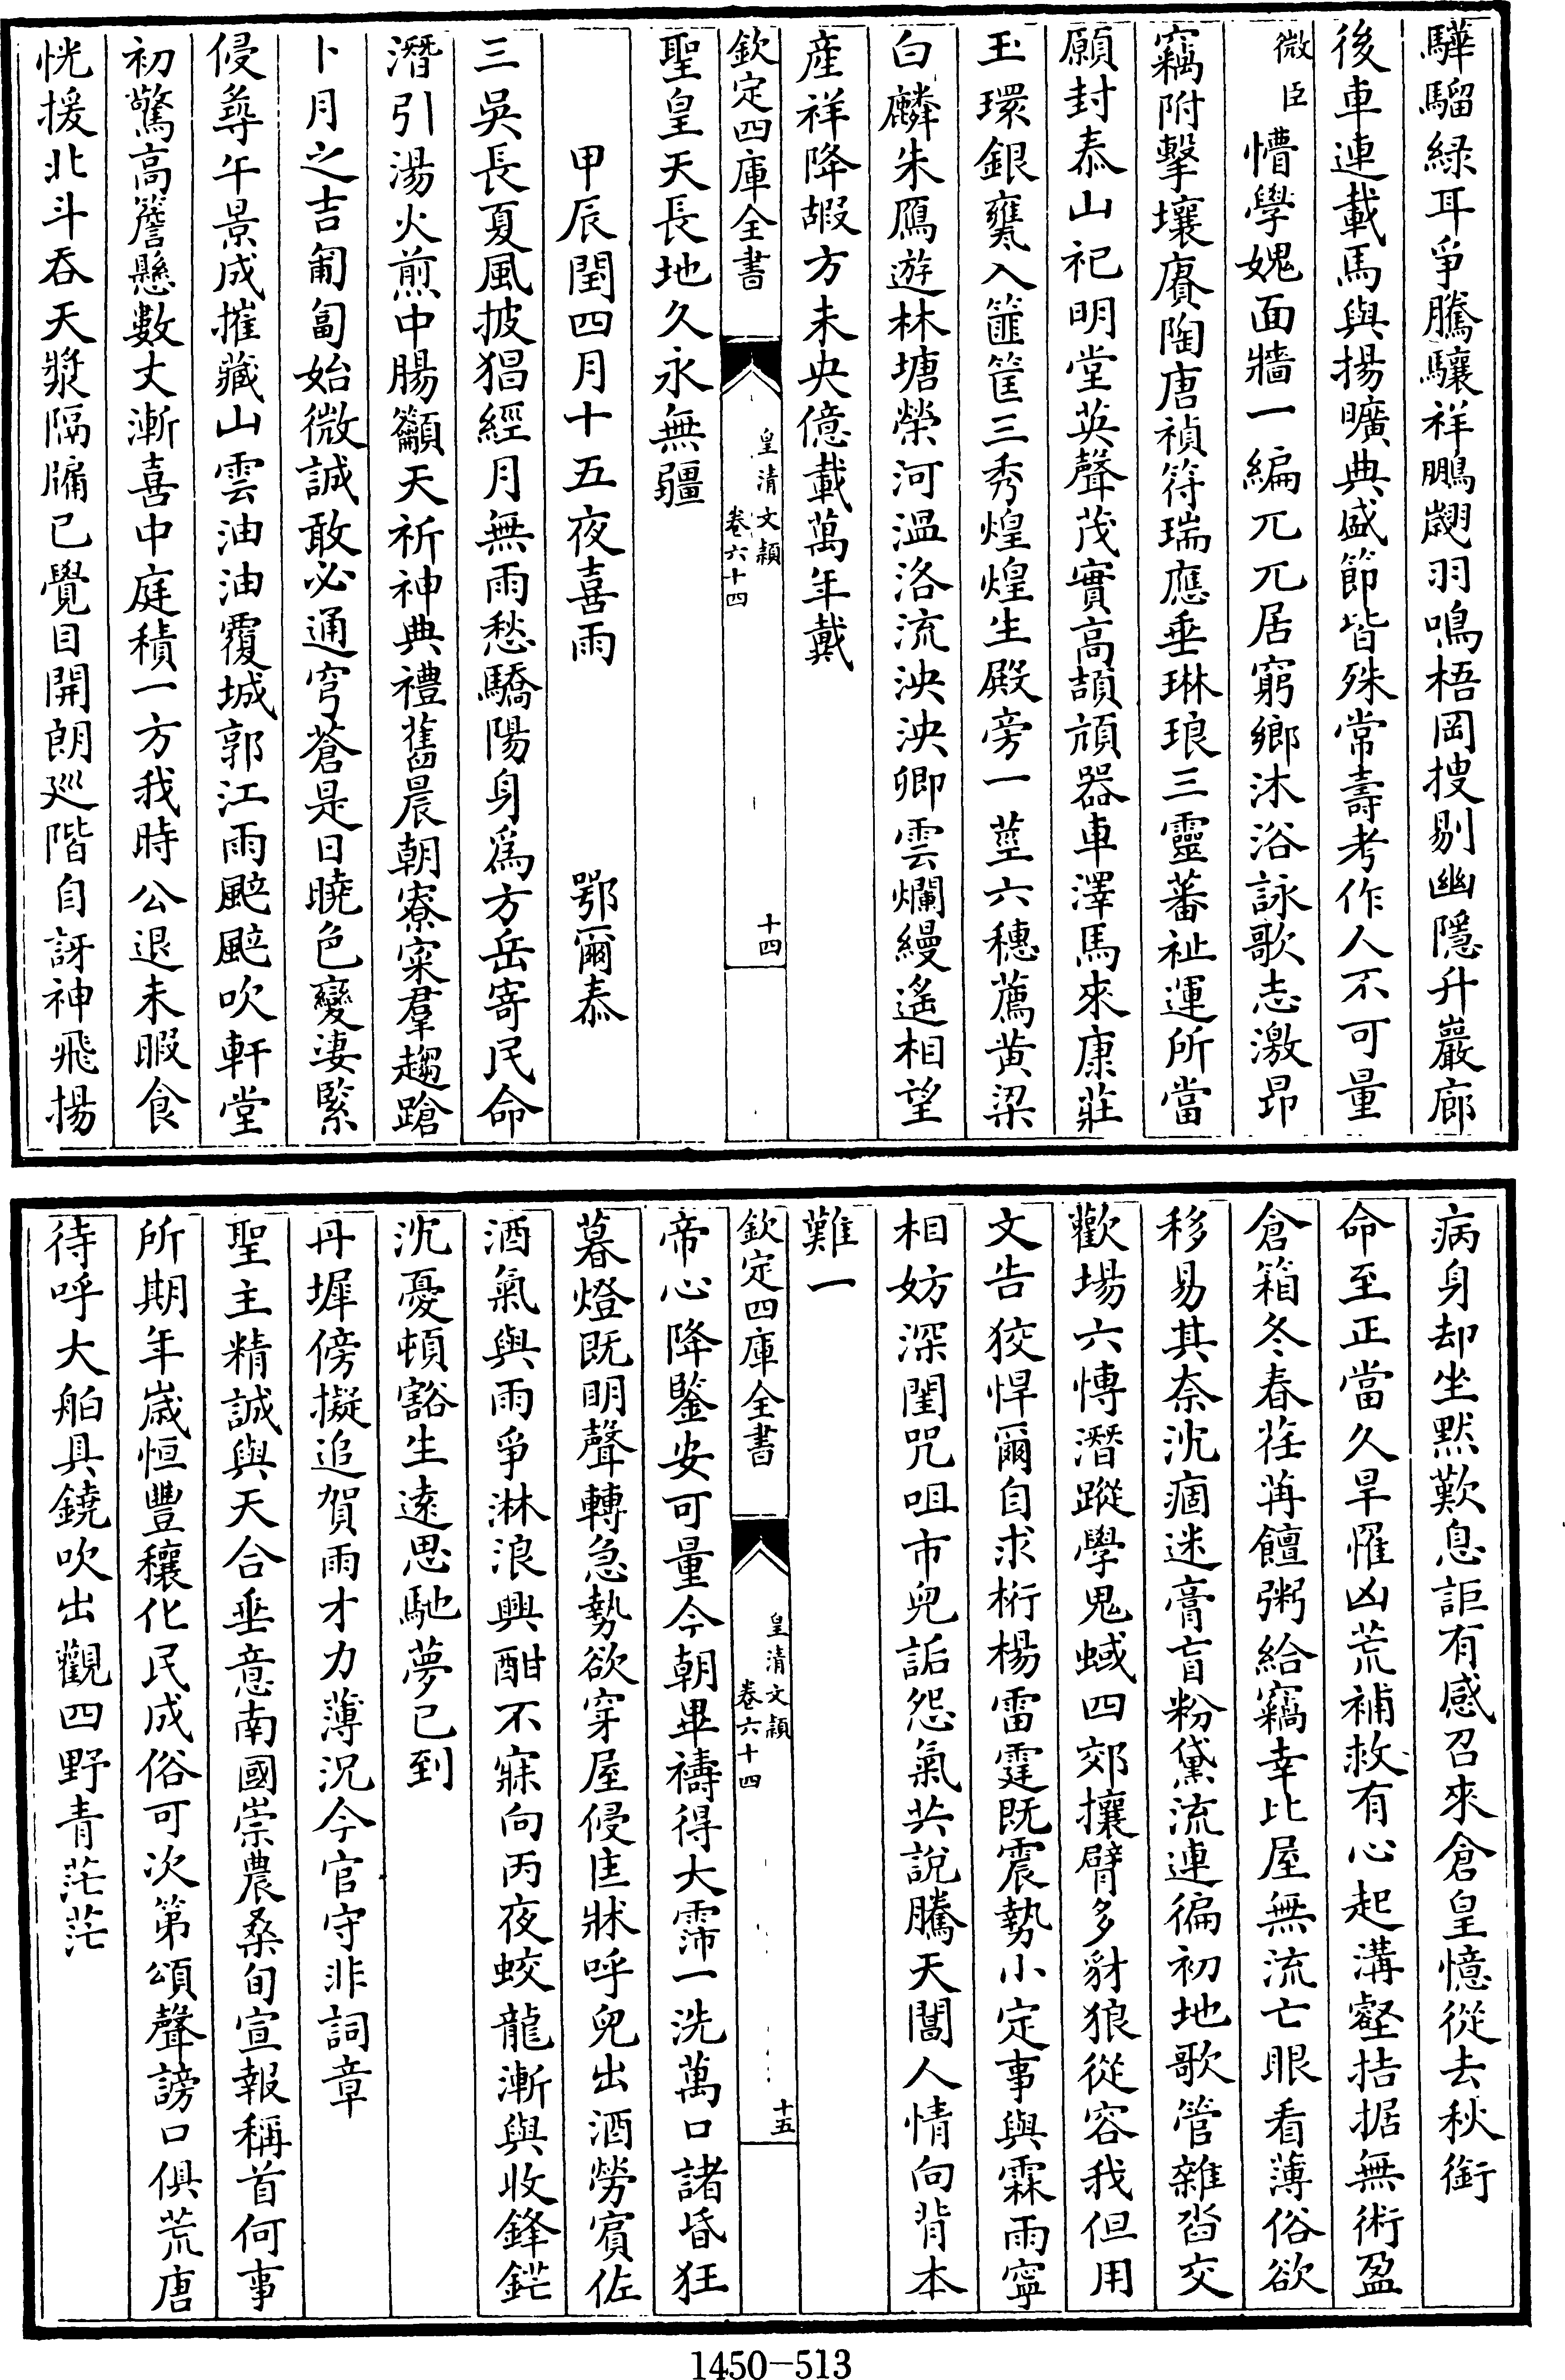 驊騮綠耳爭騰驤祥鵬翽羽鳴梧岡搜剔幽隱升巖廊
後車連載馬與揚曠典盛節皆殊常壽考作人不可量
微臣懵學媿面牆一編兀兀居窮鄉沐浴詠歌志激昂
竊附擊壤賡陶唐禎符瑞應垂琳琅三靈蕃祉運所當
願封泰山祀明堂英聲茂實高頡頏器車澤馬來康莊
玉環銀甕入篚筐三秀煌煌生殿旁一莖六穗薦黃粱
白麟朱鴈遊林塘榮河溫洛流泱泱卿雲爛縵遙相望
產祥降嘏方未央億載萬年戴
欽定四庫全書
皇清文穎
卷六十四
十四
聖皇天長地久永無疆
甲辰閏四月十五夜喜雨 鄂爾泰
三吳長夏風披猖經月無雨愁驕陽身爲方岳寄民命
潛引湯火煎中腸籲天祈神典禮舊晨朝寮寀羣趨蹌
卜月之吉匍匐始微誠敢必通穹蒼是日曉色變淒緊
侵尋午景成摧藏山雲油油覆城郭江雨颯颯吹軒堂
初驚高簷懸數丈漸喜中庭積一方我時公退未暇食
恍援北斗吞天漿隔牖已覺目開朗巡階自訝神飛揚
病身却坐默歎息詎有感召來倉皇憶從去秋銜
命至正當久旱罹凶荒補救有心起溝壑拮据無術盈
倉箱冬春荏苒饘粥給竊幸比屋無流亡眼看薄俗欲
移易其奈沈痼迷膏肓粉黛流連徧初地歌管雜沓交
歡場六愽潛蹤學鬼蜮四郊攘臂多豺狼從容我但用
文告狡悍爾自求桁楊雷霆既震勢小定事與霖雨寧
相妨深閨咒咀市兒詬怨氣共說騰天閶人情向背本
難一
欽定四庫全書
皇清文穎
卷六十四
十五
帝心降鑒安可量今朝畢禱得大霈一洗萬口諸昏狂
暮燈既明聲轉急勢欲穿屋侵匡牀呼兒出酒勞賓佐
酒氣與雨爭淋浪興酣不寐向丙夜蛟龍漸與收鋒鋩
沈憂頓豁生遠思馳夢已到
丹墀傍擬追賀雨才力薄況今官守非詞章
聖主精誠與天合垂意南國崇農桑旬宣報稱首何事
所期年歲恒豐穰化民成俗可次第頌聲謗口俱荒唐
待呼大舶具鐃吹出觀四野青茫茫
1450-513